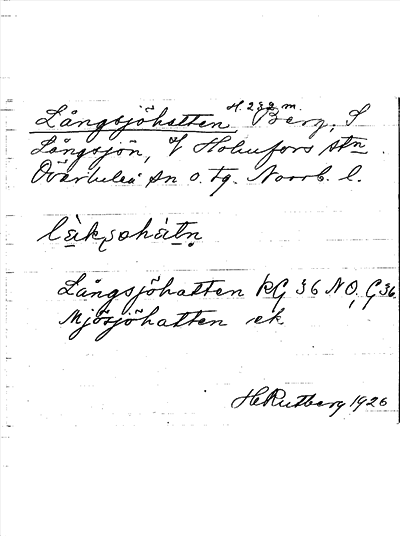 H. 232 m.
Långsjöhatten Berg, S
Långsjön, V Holmfors stn
Överlulea sn o. tg. Norrb. l.
làkʂøhàtn̥
Långsjöhatten KG 36 NO, G36.
Mjösjöhatten ek
H Rutberg 1926